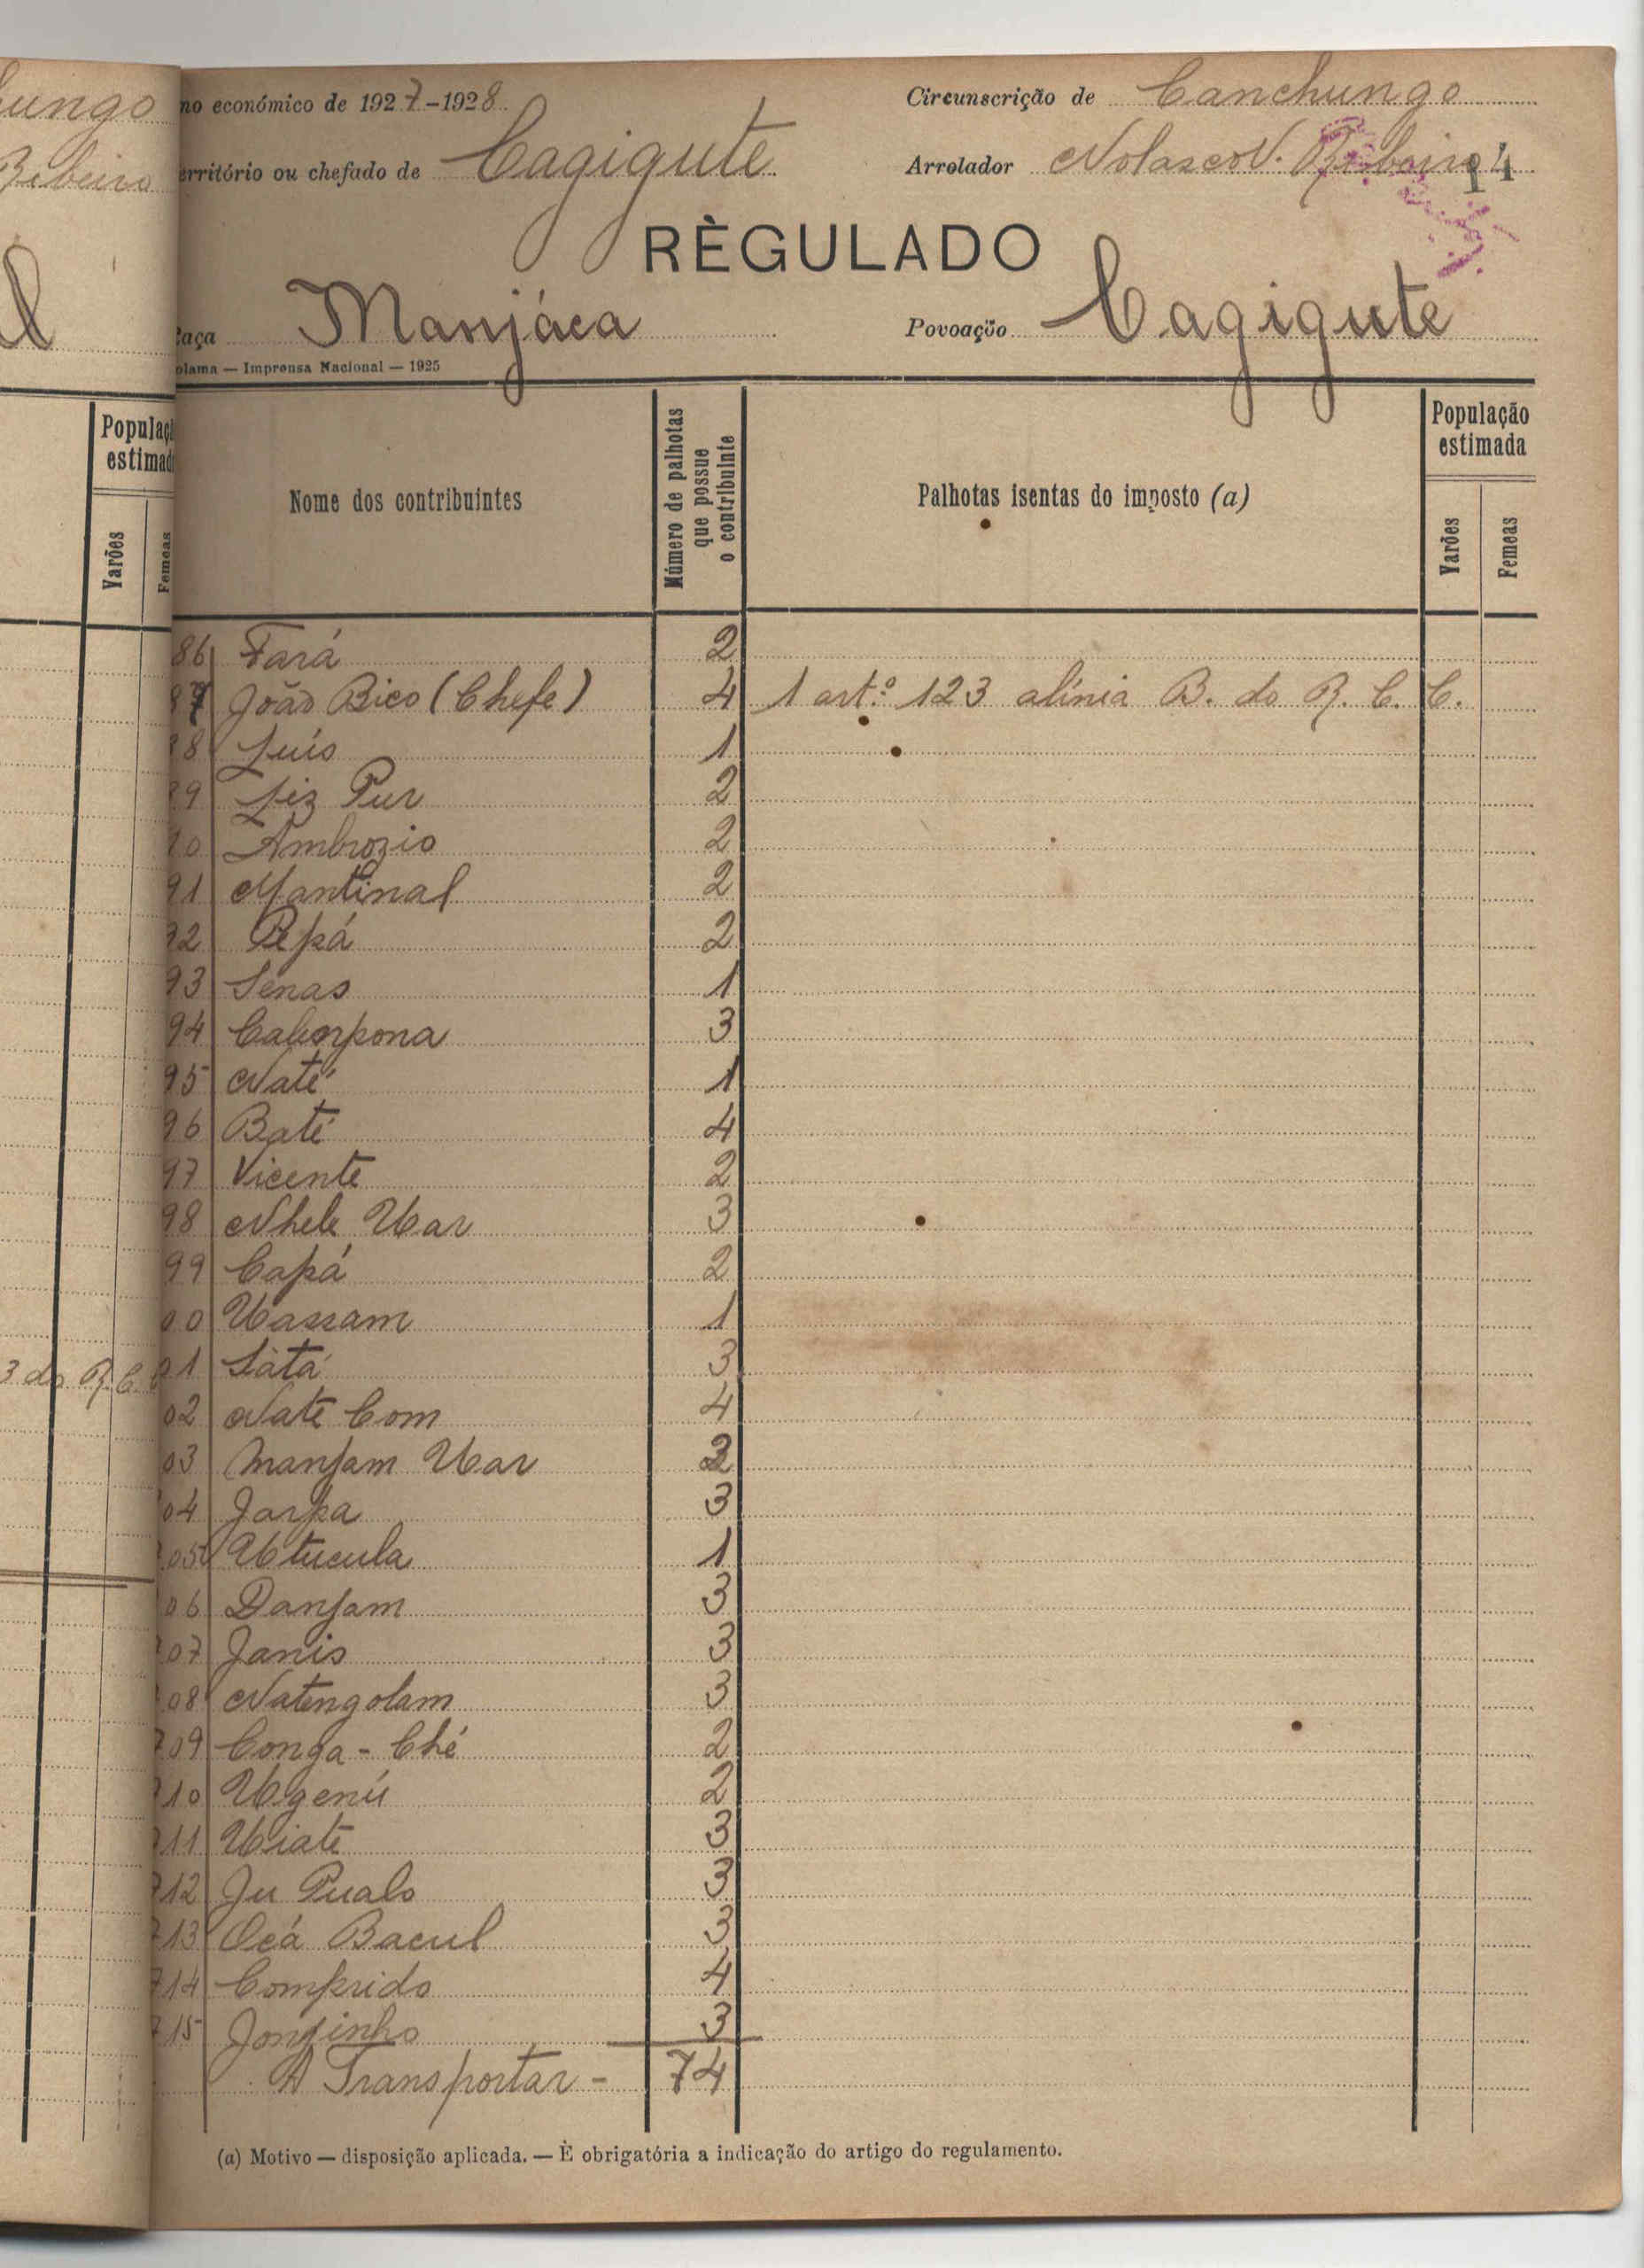 ungo
Ribeiro
l
Populaç
estimad
Varões
Femeas
3 do R. C.
no económico de 1927-1928
Circunscrição de Canchungo
erritório ou chefado de Cagigute
Arrolador Nolasco V. Ribeiro
14
RÈGULADO
aça Manjáca
Povoação Cagigute
olama — Imprensa Nacional — 1925
Nome dos contribuintes
Número de palhotas que possue o contribuinte
Palhotas isentas do imposto (a)
População estimada
Varões
Femeas
86 Fará 2
87 João Bico (Chefe) 4 1 artº 123 alínia B. do R. C. C.
88 Luís 1
89 Liz Pur 2
90 Ambrozio 2
91 Mantinal 2
92 Pepá 2
93 Senas 1
94 3
95 Naté 1
96 Baté 4
97 Vicente 2
98 Nhele Uar 3
99 Capá 2
00 Uassam 1
01 Látá 3
02 Naté Com 4
03 Manjam Uar
04 Jarpa 3
05 Utucula 1
06 Danjam 3
07 Janis 3
08 Natengolam 3
709 Conga - Ché 2
710 Ugenú 2
711 Uiate 3
712 Ju Pualo 3
713 Ocá Bacul 3
714 Comprido 4
715 Jonzinho 3
A Transportar - 74
(a) Motivo — disposição aplicada. — È obrigatória a indicação do artigo do regulamento.